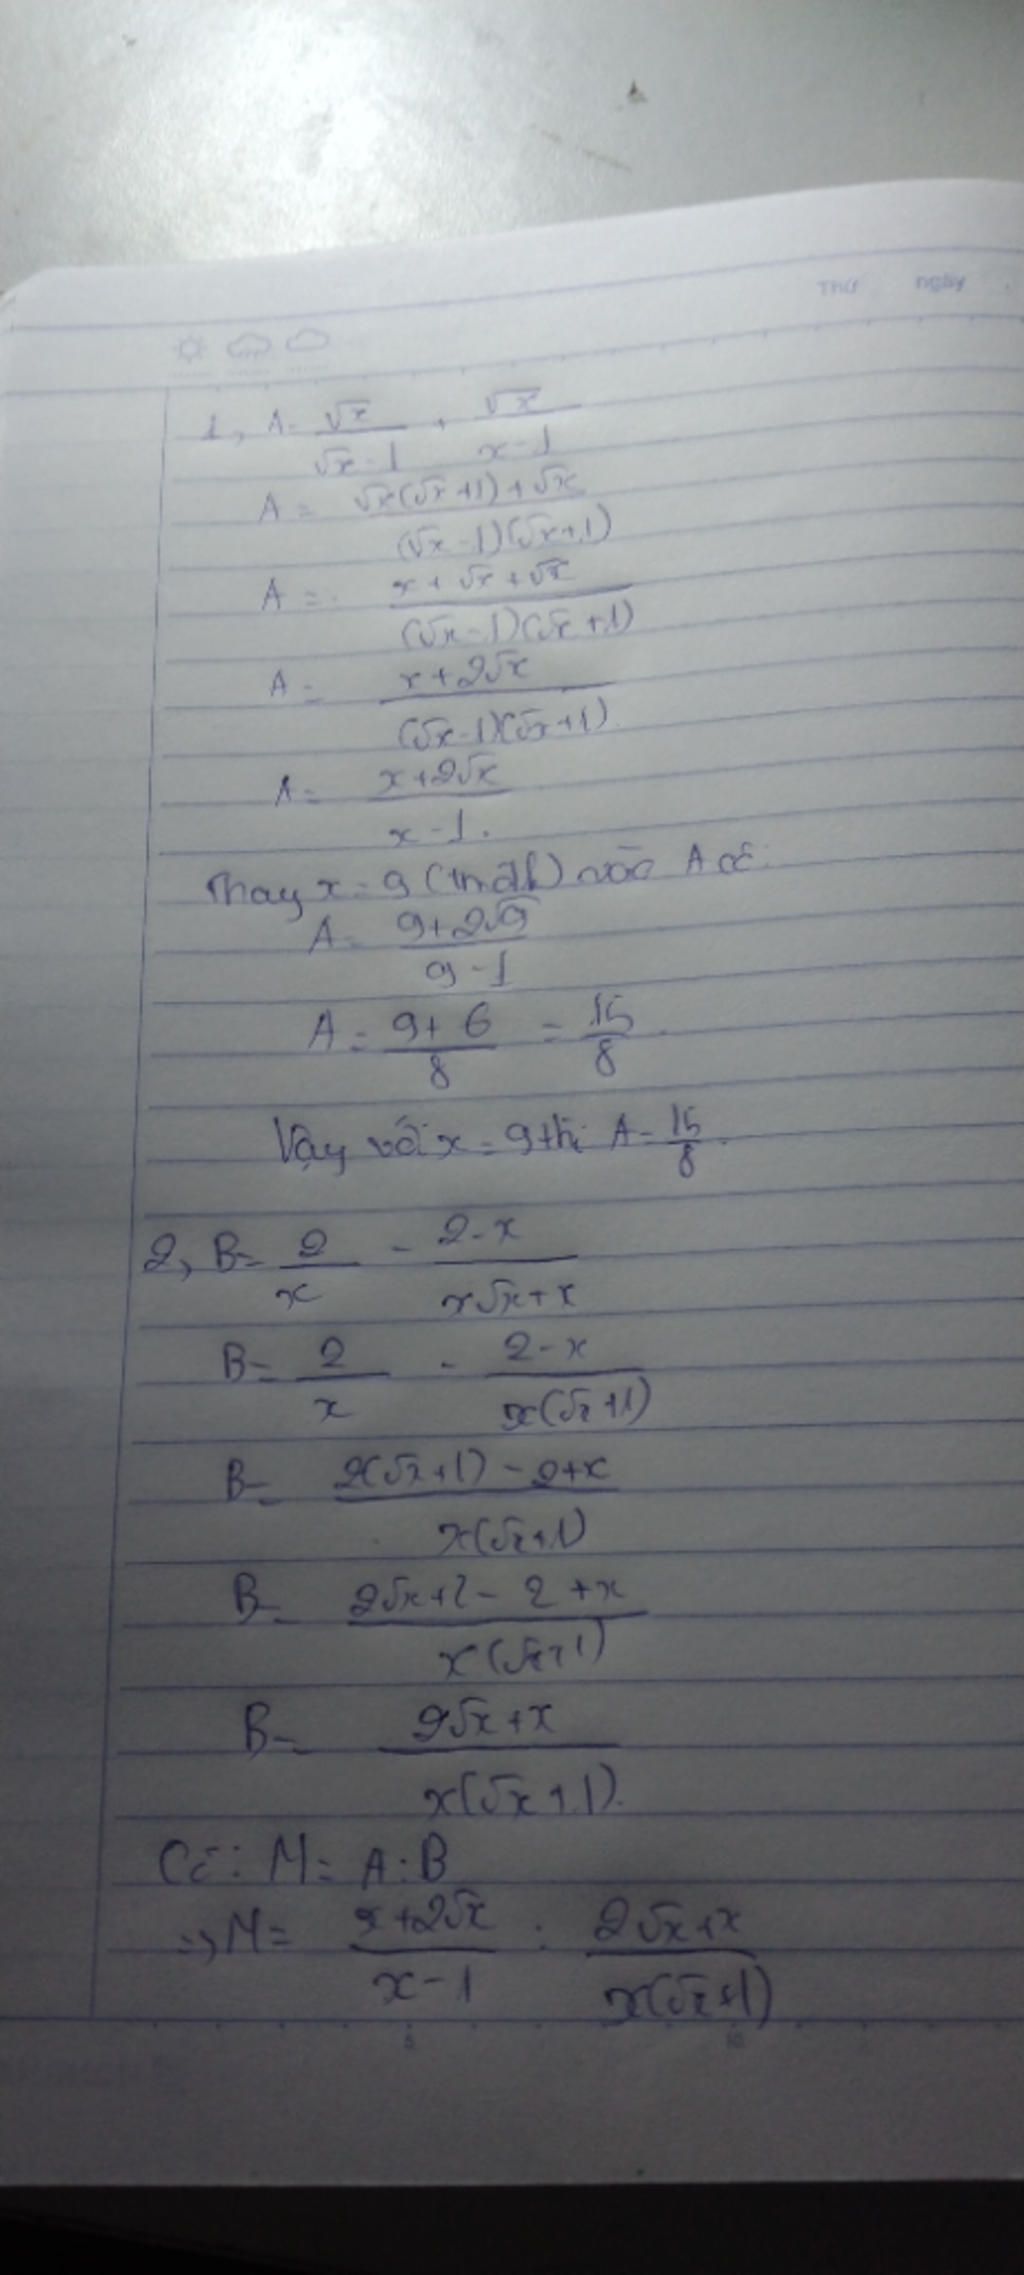 Thứ ngày
1, A = √x/(√x-1) + √x/(x-1)
A = (√x(√x+1)+√x)/((√x-1)(√x+1))
A = (x+√x+√x)/((√x-1)(√x+1))
A = (x+2√x)/((√x-1)(√x+1))
A = (x+2√x)/(x-1).
Thay x = 9 (tmđk) vào A có:
A = (9+2√9)/(9-1)
A = (9+6)/8 = 15/8
Vậy với x = 9 thì A = 15/8.
2, B = 2/x - (2-x)/(x√x+x)
B = 2/x - (2-x)/(x(√x+1))
B = (2(√x+1)-2+x)/(x(√x+1))
B = (2√x+2-2+x)/(x(√x+1))
B = (2√x+x)/(x(√x+1)).
Có: M = A : B
=> M = (x+2√x)/(x-1) : (2√x+x)/(x(√x+1))
5 10